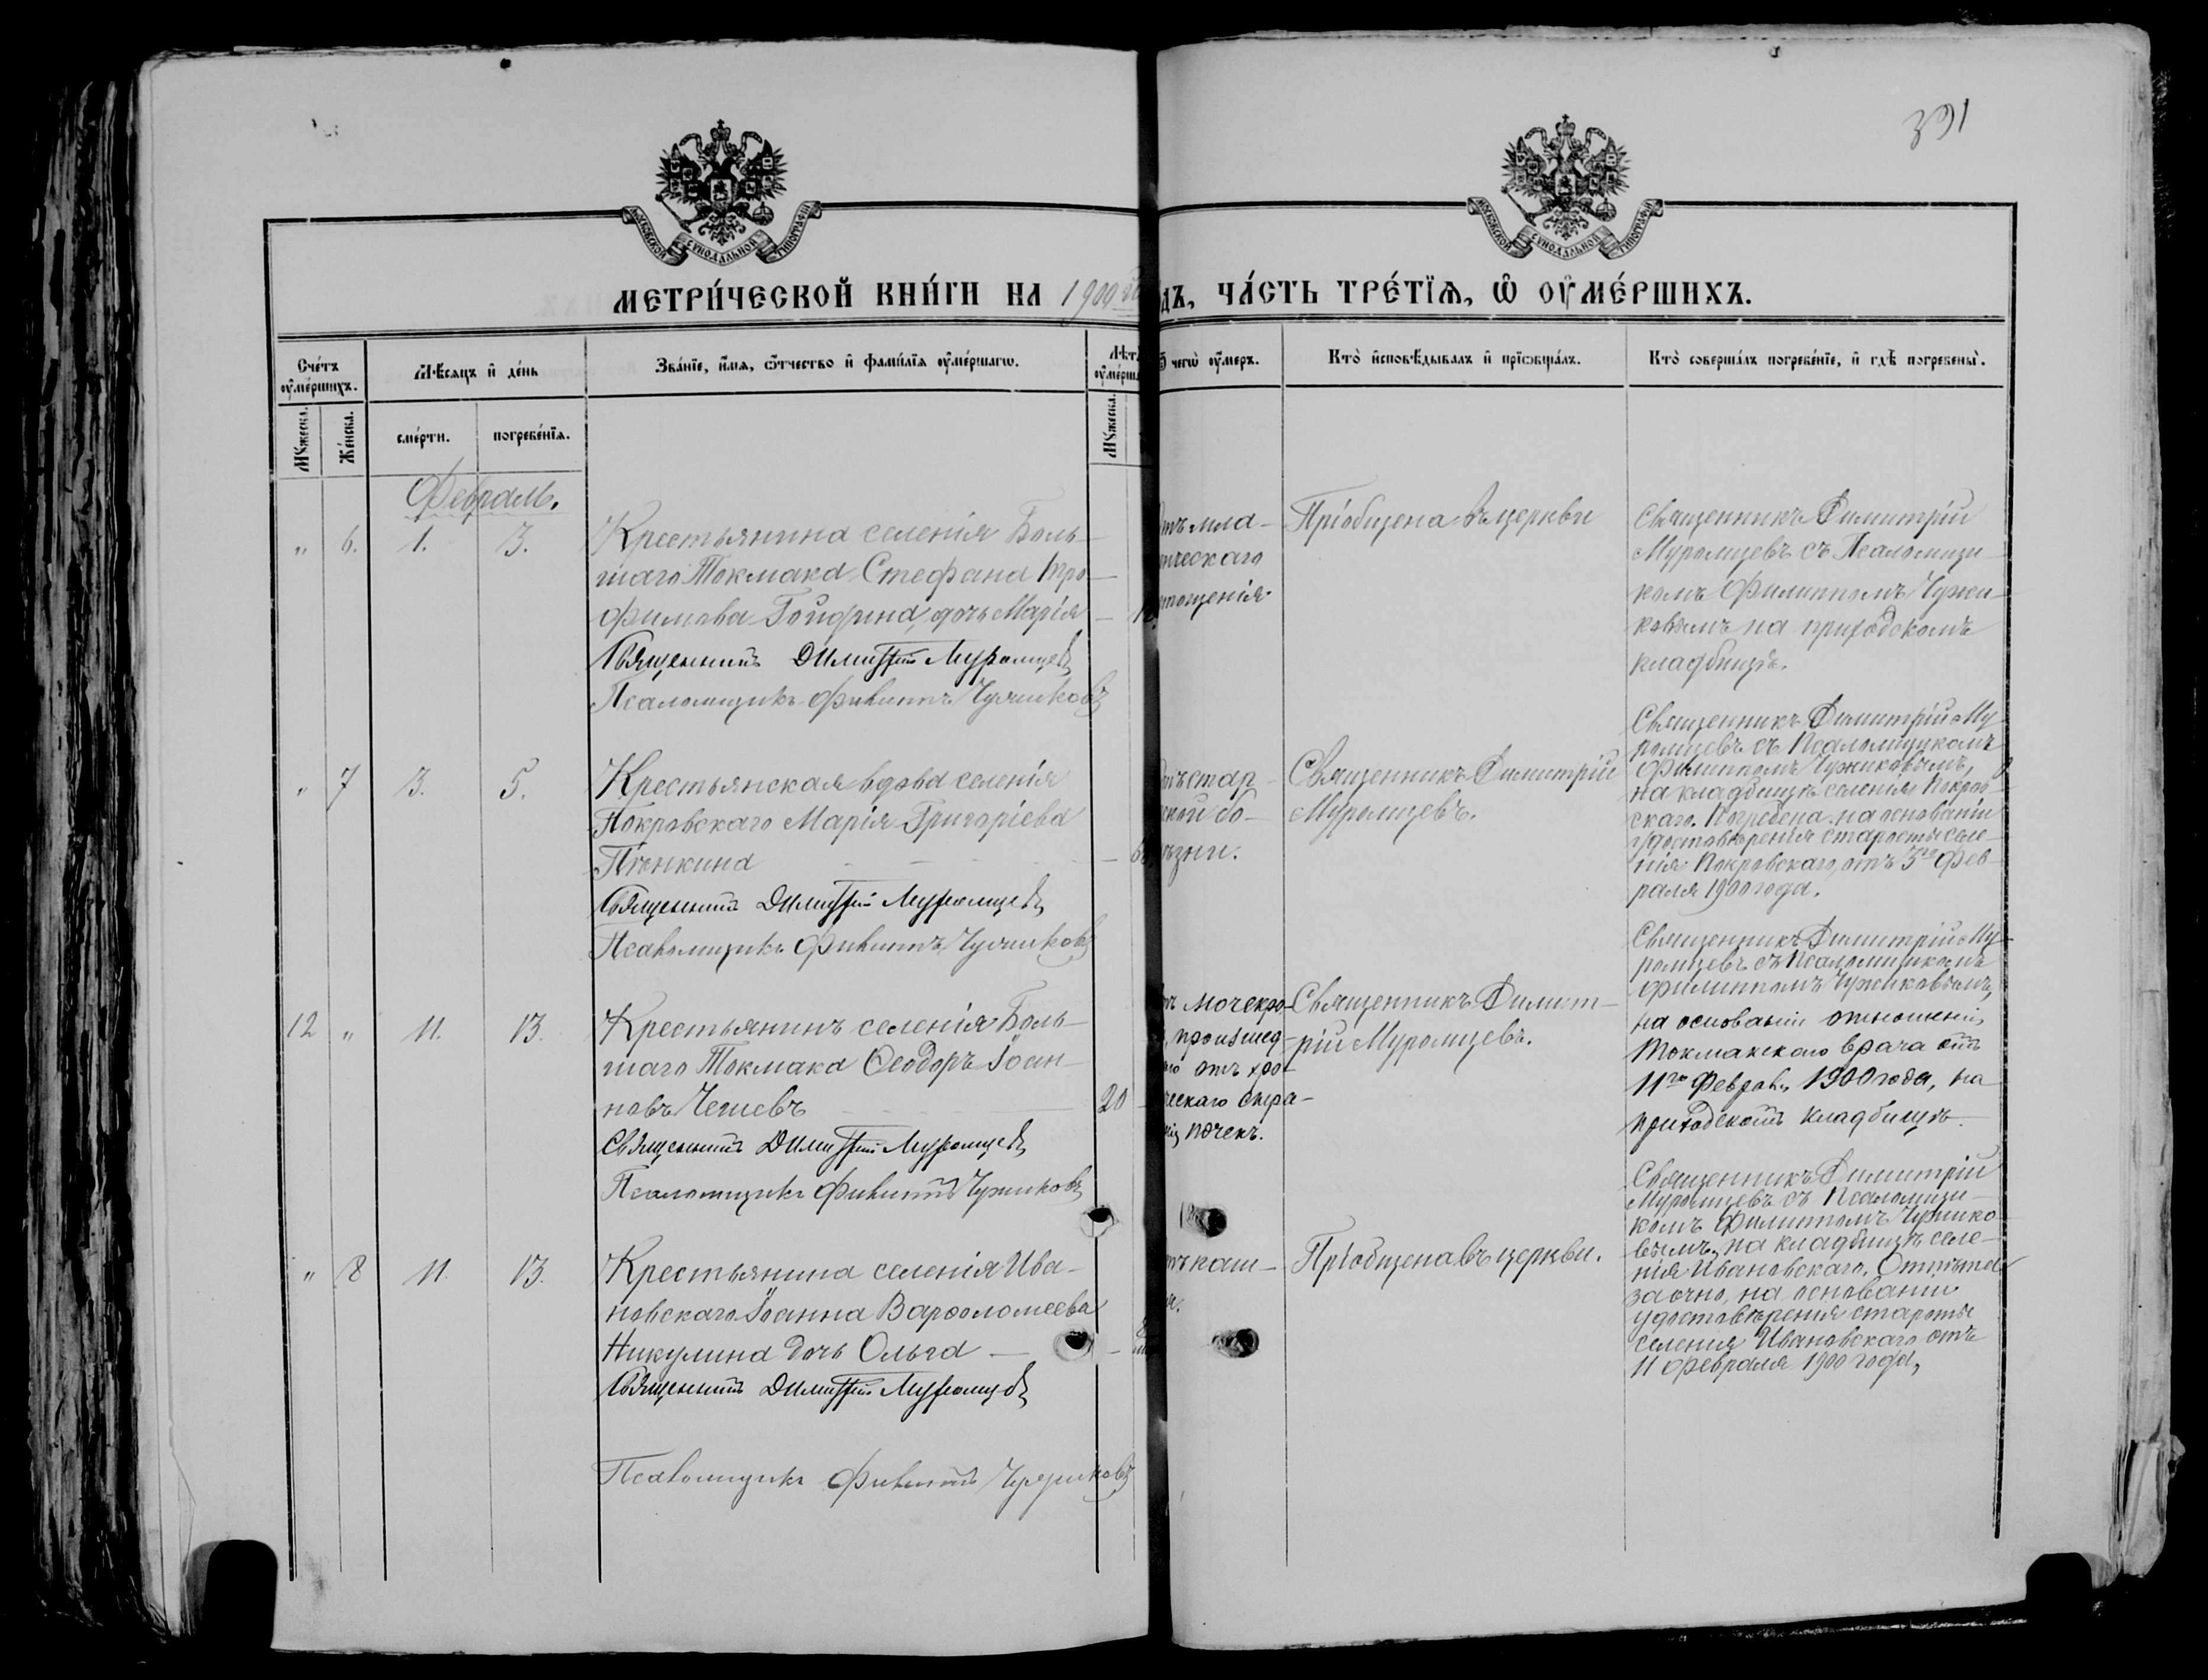 391
МОСКОВСКОЙ СѴНОДАЛЬНОЙ ТИПОГРАФІИ
МОСКОВСКОЙ СѴНОДАЛЬНОЙ ТИПОГРАФІИ
МЕТРИ́ЧЕСКОЙ КНИ́ГИ НА 1900 дъ, ЧА́СТЬ ТРЕ́ТЇѦ, Ѡ҆ ОУ҆МЕ́РШИХЪ.
Сче́тъ оу҆ме́ршихъ.
Мѣ́сяцъ и҆ де́нь
Зва́нїе, и҆́мѧ, ѻ҆́тчество и҆ фами́лїѧ оу҆ме́ршагѡ.
Лѣт
оу҆ме́рша
чегѡ̀ оу҆́меръ.
Кто̀ и҆сповѣ́дывалъ и҆ прїѡбща́лъ.
Кто̀ соверша́лъ погребе́нїе, и҆ гдѣ̀ погребены̀.
Мꙋжеска.
Же́нска.
сме́рти.
погребе́нїѧ.
Мꙋжеска.
Февраль.
" 6. 1. 3.
Крестьянина селенія Боль-
шаго Токмака Стефана Тро-
фимова Гойдина, дочь Марія
Священникъ Димитрій Муромцевъ
Псаломщикъ Филиппъ Чужиковъ
отъ мла-
ческаго
тощенія.
Пріобщена въ церкви
Священникъ Димитрій
Муромцевъ съ Псаломщи-
комъ Филиппомъ Чужи-
ковымъ на приходскомъ
кладбищѣ.
" 7 3. 5.
Крестьянская вдова селенія
Покровскаго Марія Григоріева
Пѣнкина
Священникъ Димитрій Муромцевъ
Псаломщикъ Филиппъ Чужиковъ
стар-
ской бо-
ѣзни.
Священникъ Димитрій
Муромцевъ.
Священникъ Димитрій Му-
ромцевъ съ Псаломщикомъ
Филиппомъ Чужиковымъ,
на кладбищѣ селенія Покров-
скаго. Погребена на основаніи
удостовѣренія старосты селе-
нія Покровскаго, отъ 3го Фев-
раля 1900 года.
12 " 11. 13.
Крестьянинъ селенія Боль-
шаго Токмака Ѳеодоръ Іоан-
новъ Чешевъ
20
Священникъ Димитрій Муромцевъ
Псаломщикъ Филиппъ Чужиковъ
мочекро-
, происшед-
отъ хро-
ческаго стра-
почекъ.
Священникъ Димит-
рій Муромцевъ.
Священникъ Димитрій Му-
ромцевъ съ Псаломщикомъ
Филиппомъ Чужиковымъ,
на основаніи отношенія
Токмакскаго врача отъ
11го Февраля 1900 года, на
приходскомъ кладбищѣ.
" 8 11. 13.
Крестьянина селенія Ива-
новскаго Іоанна Варѳоломеева
Никулина дочь Ольга
Священникъ Димитрій Муромцевъ
Псаломщикъ Филиппъ Чужиковъ
каш-
Пріобщена въ церкви.
Священникъ Димитрій
Муромцевъ съ Псаломщи-
комъ Филиппомъ Чужико-
вымъ, на кладбищѣ селе-
нія Ивановскаго. Отпѣта
заочно, на основаніи
удостовѣренія старосты
селенія Ивановскаго отъ
11 Февраля 1900 года,